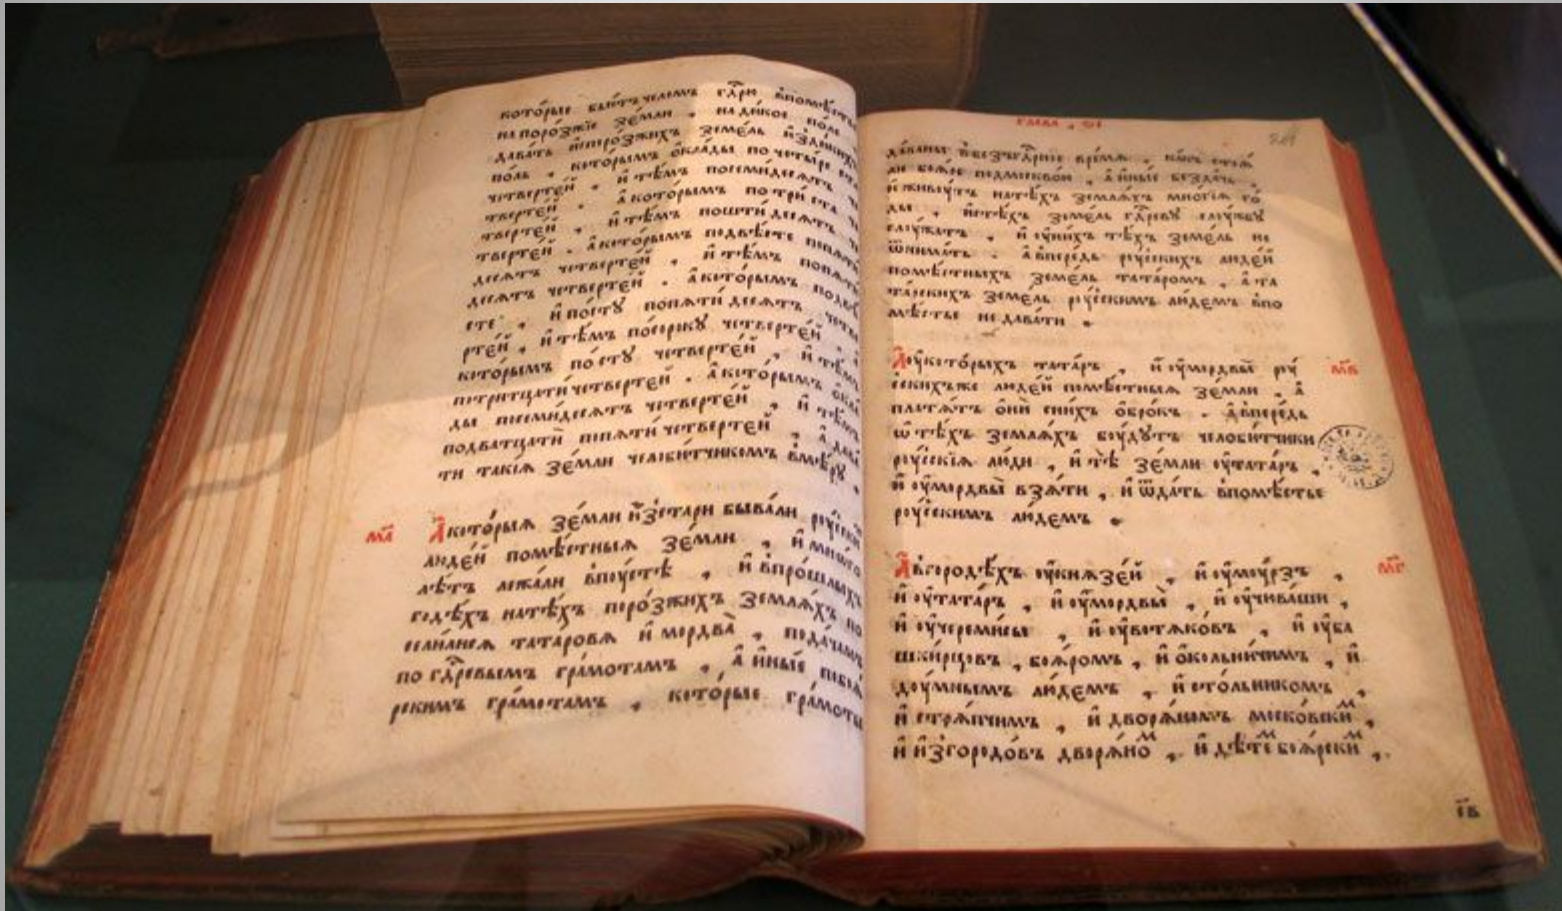 которые бью́тъ челомъ гдⷭ҇рю в̾помѣ́стье
на поро́зжїе зе́мли , на ди́кое по́ле
дава́ть и҆споро́зжихъ земе́ль и҆ з̾ди́кихъ
поль , кото́рымъ ѻ҆кла́ды по четы́ре ста
четверте́й , и҆ тѣ́мъ посемидеся́тъ че
твертей . а҆ кото́рымъ по три́ ста че
твертей , и҆ тѣ́мъ по шти́десятъ че
твертей . а҆ кото́рымъ по двѣ́сте попять
десятъ четверте́й , и҆ тѣ́мъ попять
десятъ четверте́й . а҆ кото́рымъ подвѣ
сте , и҆ по сту попяти́десятъ четве
рте́й , и҆ тѣ́мъ по со́року четверте́й . а҆
кото́рымъ по́ сту четверте́й , и҆ тѣ́мъ
по три́тцати четверте́й . а҆ кото́рымъ ѻ҆кла
ды посемидеся́тъ четверте́й , и҆ тѣ́мъ
подва́тцати попяти́ четверте́й , а҆ дава
ти такі́я зе́мли челоби́тчикомъ в̾мѣ́ру .
м҃а А҆ кото́рыя зе́мли и҆з̾стари быва́ли ру́ски
люде́й помѣ́стныя зе́мли , и҆ мно́гѡ
лѣ́тъ лежа́ли в̾пу́стѣ , и҆ в̾про́шлыхъ
годѣ́хъ на тѣ́хъ поро́зжихъ земля́хъ по
сели́лися татаровя и҆ мордва̀ , пода́чамъ
по гдⷭ҇ревымъ гра́мотамъ , а҆ и҆ны́е побоя
рскимъ гра́мотамъ , кото́рые гра́моты
глава , ѕ҃і
да́ваны в̾безъгдⷭ҇рное вре́мя , ка́къ стоя́
ли боя́ре подмоско́ю , а҆ и҆ны́е бездачъ ,
и҆ живу́тъ на тѣ́хъ земля́хъ мно́гїя го́
ды , и҆ с тѣ́хъ земе́ль гдⷭ҇реву слу́жбу
слу́жатъ , и҆ ѹ҆ ни́хъ тѣ́хъ земе́ль не
ѿнима́ть . а҆ в̾пере́дь ру́сскихъ люде́й
помѣ́стныхъ земе́ль татаромъ , а҆ та
та́рскихъ земе́ль ру́сскимъ лю́демъ в̾по
мѣ́стье не дава́ти .
А҆ ѹ҆ кото́рыхъ тата́ръ , и҆ ѹ҆ мордвы̀ ру́ м҃в
сскихъ же люде́й помѣ́стныя зе́мли , а҆
пла́тятъ ѻ҆нѝ с ни́хъ ѻ҆бро́къ . а҆ в̾пере́дь
ѡ҆ тѣ́хъ земля́хъ бу́дутъ челоби́тчики
ру́сскїя лю́ди , и҆ тѣ̀ зе́мли ѹ҆ тата́ръ ,
и҆ ѹ҆ мордвы̀ взя́ти , и҆ ѿда́ть в̾помѣ́стье
ру́сскимъ лю́демъ .
А҆ в̾городѣ́хъ ѹ҆ князе́й , и҆ ѹ҆ му́рзъ , м҃г
и҆ ѹ҆ тата́ръ , и҆ ѹ҆ мордвы̀ , и҆ ѹ҆ чиваши ,
и҆ ѹ҆ черемисы , и҆ ѹ҆ вотяко́въ , и҆ ѹ҆ ба
шки́рцовъ , боя́ромъ , и҆ ѻ҆кольни́чимъ , и҆
ду́мнымъ лю́демъ , и҆ сто́льникомъ ,
и҆ стря́пчимъ , и҆ дворя́номъ моско́вскиⷨ ,
и҆ и҆згородо́въ дворя́ноⷨ , и҆ дѣ́теⷨ боя́рскиⷨ ,